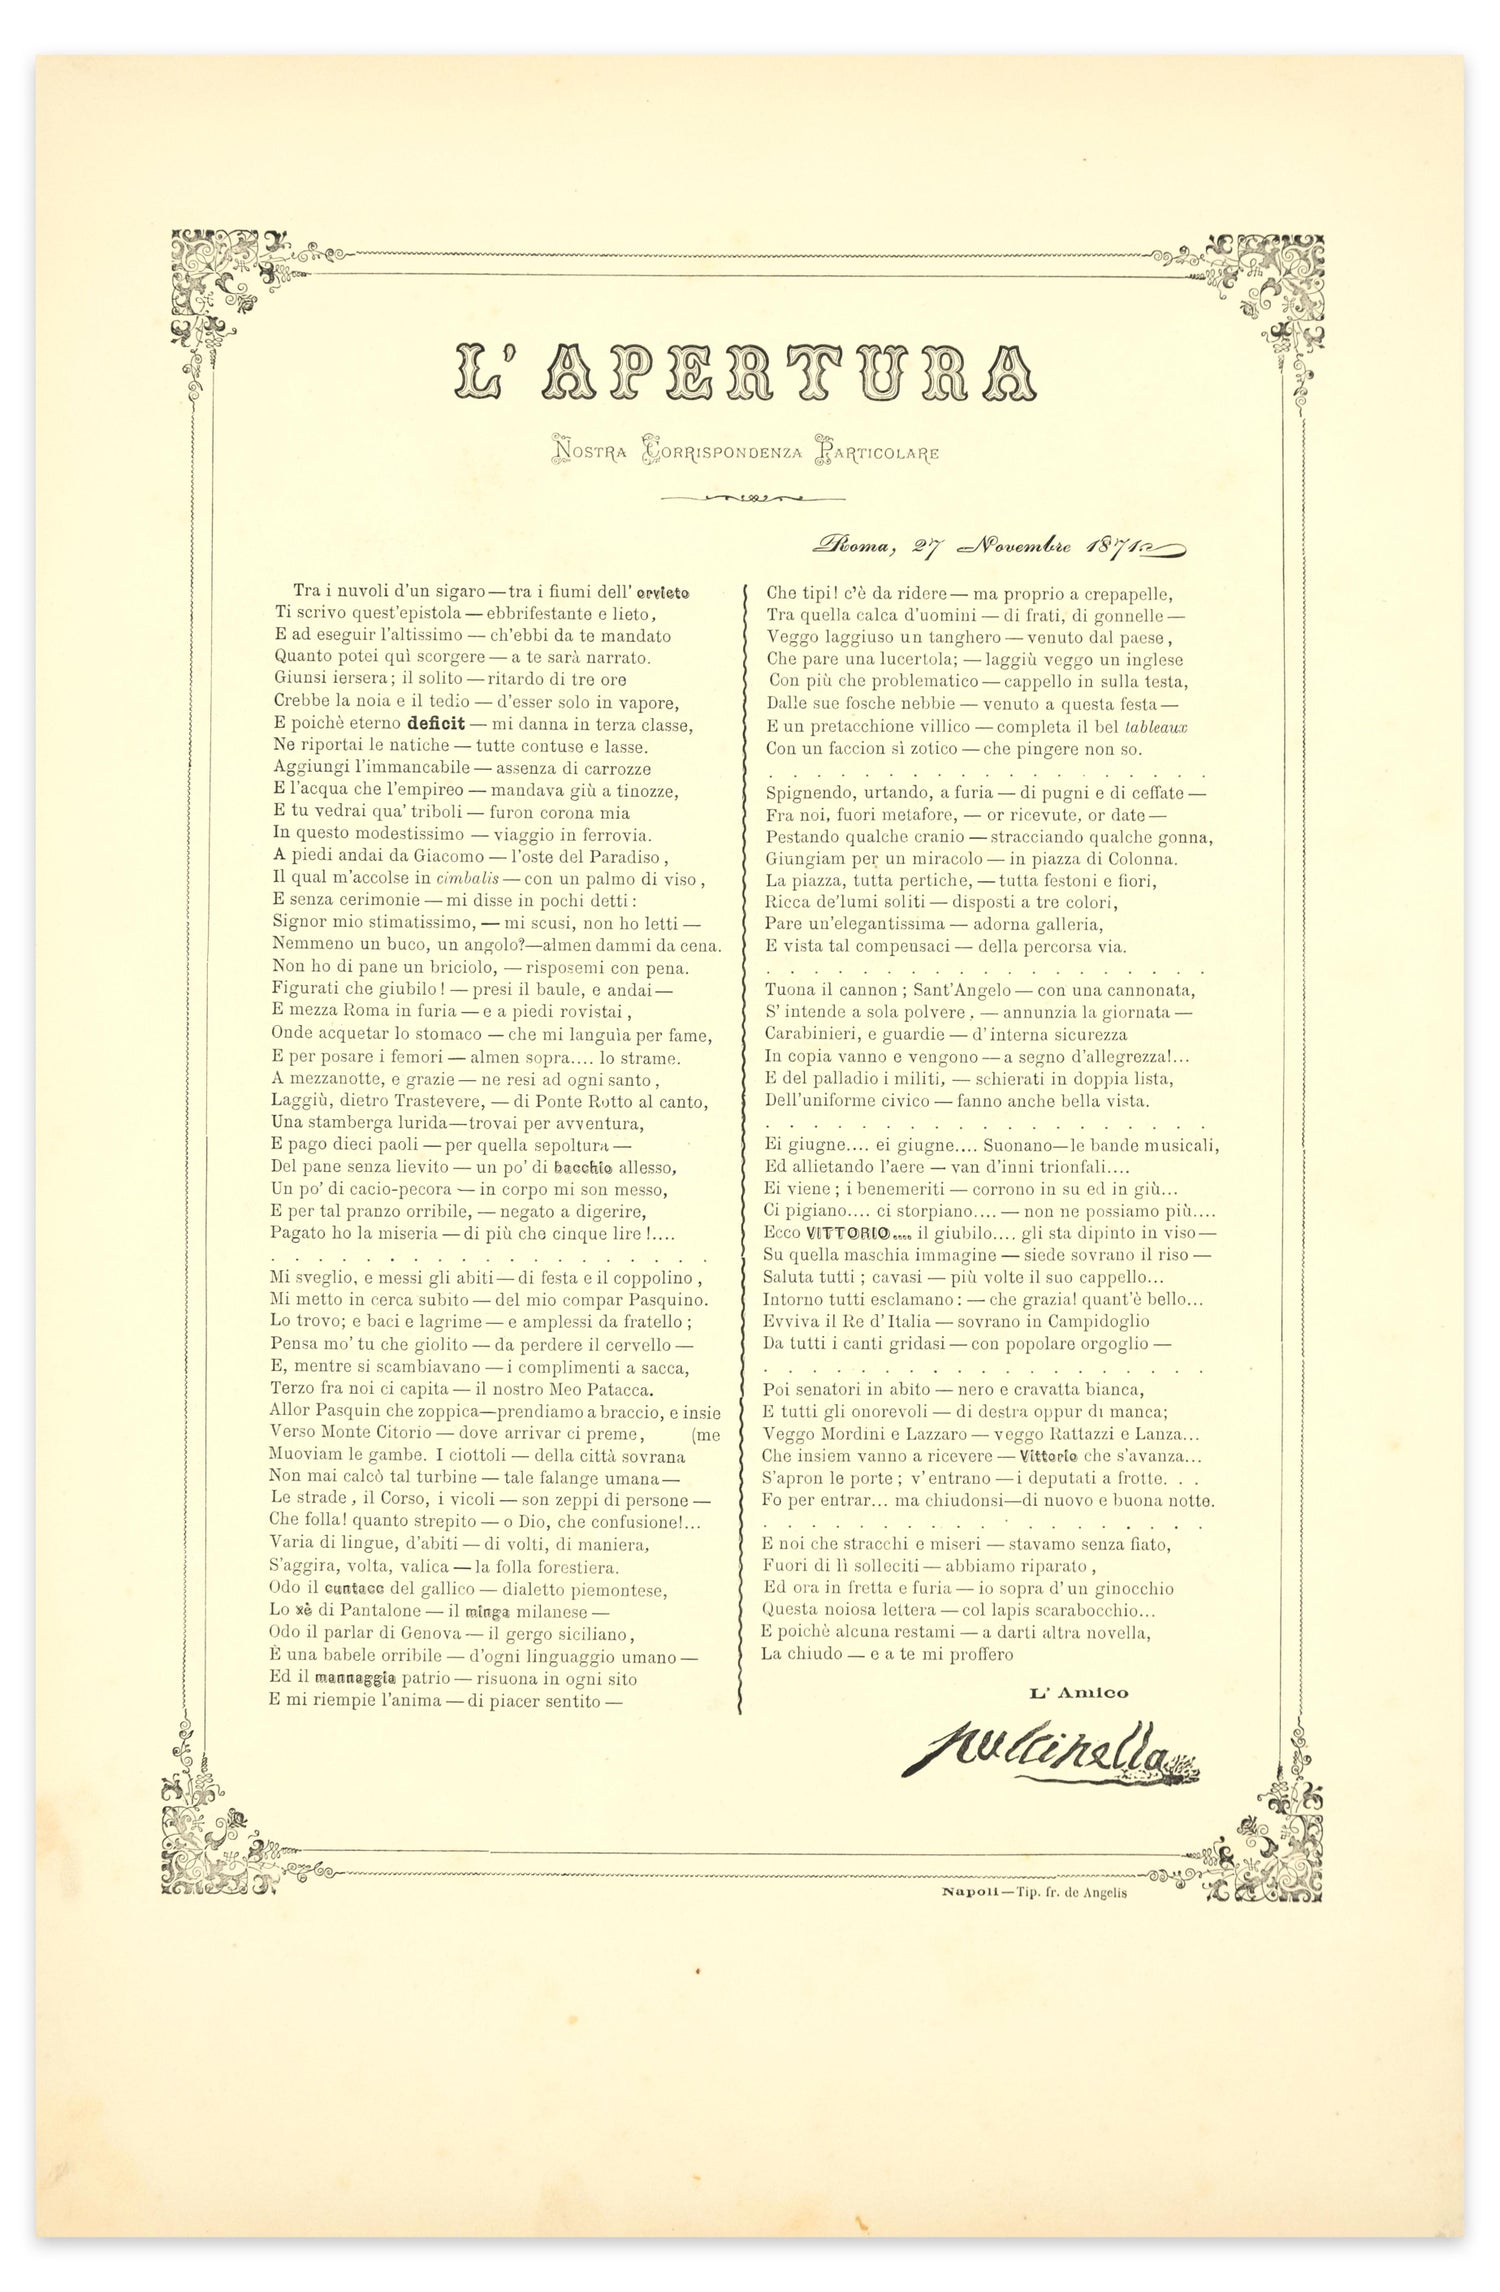 L'APERTURA
Nostra Corrispondenza Particolare
Roma, 27 Novembre 1871
Tra i nuvoli d'un sigaro—tra i fiumi dell' orvieto
Ti scrivo quest'epistola — ebbrifestante e lieto,
E ad eseguir l'altissimo — ch'ebbi da te mandato
Quanto potei quì scorgere — a te sarà narrato.
Giunsi iersera; il solito — ritardo di tre ore
Crebbe la noia e il tedio — d'esser solo in vapore,
E poichè eterno deficit — mi danna in terza classe,
Ne riportai le natiche — tutte contuse e lasse.
Aggiungi l'immancabile — assenza di carrozze
E l'acqua che l'empireo — mandava giù a tinozze,
E tu vedrai qua' triboli — furon corona mia
In questo modestissimo — viaggio in ferrovia.
A piedi andai da Giacomo — l'oste del Paradiso,
Il qual m'accolse in cimbalis — con un palmo di viso,
E senza cerimonie — mi disse in pochi detti:
Signor mio stimatissimo, — mi scusi, non ho letti —
Nemmeno un buco, un angolo?—almen dammi da cena.
Non ho di pane un briciolo, — risposemi con pena.
Figurati che giubilo! — presi il baule, e andai—
E mezza Roma in furia — e a piedi rovistai,
Onde acquetar lo stomaco — che mi languìa per fame,
E per posare i femori — almen sopra.... lo strame.
A mezzanotte, e grazie — ne resi ad ogni santo,
Laggiù, dietro Trastevere, — di Ponte Rotto al canto,
Una stamberga lurida—trovai per avventura,
E pago dieci paoli — per quella sepoltura —
Del pane senza lievito — un po' di bacchio allesso,
Un po' di cacio-pecora — in corpo mi son messo,
E per tal pranzo orribile, — negato a digerire,
Pagato ho la miseria — di più che cinque lire!....
. . . . . . . . . . . . . . . .
Mi sveglio, e messi gli abiti— di festa e il coppolino,
Mi metto in cerca subito — del mio compar Pasquino.
Lo trovo; e baci e lagrime — e amplessi da fratello;
Pensa mo' tu che giolito — da perdere il cervello —
E, mentre si scambiavano — i complimenti a sacca,
Terzo fra noi ci capita — il nostro Meo Patacca.
Allor Pasquin che zoppica—prendiamo a braccio, e insie
Verso Monte Citorio — dove arrivar ci preme, (me
Muoviam le gambe. I ciottoli — della città sovrana
Non mai calcò tal turbine — tale falange umana—
Le strade, il Corso, i vicoli — son zeppi di persone —
Che folla! quanto strepito — o Dio, che confusione!...
Varia di lingue, d'abiti — di volti, di maniera,
S'aggira, volta, valica — la folla forestiera.
Odo il cuntacc del gallico — dialetto piemontese,
Lo xè di Pantalone — il minga milanese —
Odo il parlar di Genova — il gergo siciliano,
È una babele orribile — d'ogni linguaggio umano —
Ed il mannaggia patrio — risuona in ogni sito
E mi riempie l'anima — di piacer sentito —
Che tipi! c'è da ridere— ma proprio a crepapelle,
Tra quella calca d'uomini — di frati, di gonnelle —
Veggo laggiuso un tanghero — venuto dal paese,
Che pare una lucertola; — laggiù veggo un inglese
Con più che problematico — cappello in sulla testa,
Dalle sue fosche nebbie — venuto a questa festa—
E un pretacchione villico — completa il bel tableaux
Con un faccion sì zotico — che pingere non so.
. . . . . . . . . . . . . . . .
Spignendo, urtando, a furia — di pugni e di ceffate —
Fra noi, fuori metafore, — or ricevute, or date —
Pestando qualche cranio — stracciando qualche gonna,
Giungiam per un miracolo — in piazza di Colonna.
La piazza, tutta pertiche, — tutta festoni e fiori,
Ricca de'lumi soliti — disposti a tre colori,
Pare un'elegantissima — adorna galleria,
E vista tal compensaci — della percorsa via.
. . . . . . . . . . . . . . . .
Tuona il cannon; Sant'Angelo — con una cannonata,
S' intende a sola polvere, — annunzia la giornata —
Carabinieri, e guardie — d'interna sicurezza
In copia vanno e vengono — a segno d'allegrezza!...
E del palladio i militi, — schierati in doppia lista,
Dell'uniforme civico — fanno anche bella vista.
. . . . . . . . . . . . . . . .
Ei giugne.... ei giugne.... Suonano—le bande musicali,
Ed allietando l'aere — van d'inni trionfali....
Ei viene; i benemeriti — corrono in su ed in giù...
Ci pigiano.... ci storpiano.... — non ne possiamo più....
Ecco VITTORIO.... il giubilo.... gli sta dipinto in viso—
Su quella maschia immagine — siede sovrano il riso —
Saluta tutti; cavasi — più volte il suo cappello...
Intorno tutti esclamano: — che grazia! quant'è bello...
Evviva il Re d'Italia — sovrano in Campidoglio
Da tutti i canti gridasi — con popolare orgoglio —
. . . . . . . . . . . . . . . .
Poi senatori in abito — nero e cravatta bianca,
E tutti gli onorevoli — di destra oppur di manca;
Veggo Mordini e Lazzaro — veggo Rattazzi e Lanza...
Che insiem vanno a ricevere — Vittorio che s'avanza...
S'apron le porte; v'entrano — i deputati a frotte. . .
Fo per entrar... ma chiudonsi—di nuovo e buona notte.
. . . . . . . . . . . . . . . .
E noi che stracchi e miseri — stavamo senza fiato,
Fuori di lì solleciti — abbiamo riparato,
Ed ora in fretta e furia — io sopra d'un ginocchio
Questa noiosa lettera — col lapis scarabocchio...
E poichè alcuna restami — a darti altra novella,
La chiudo — e a te mi proffero
L' Amico
pulcinella
Napoli—Tip. fr. de Angelis